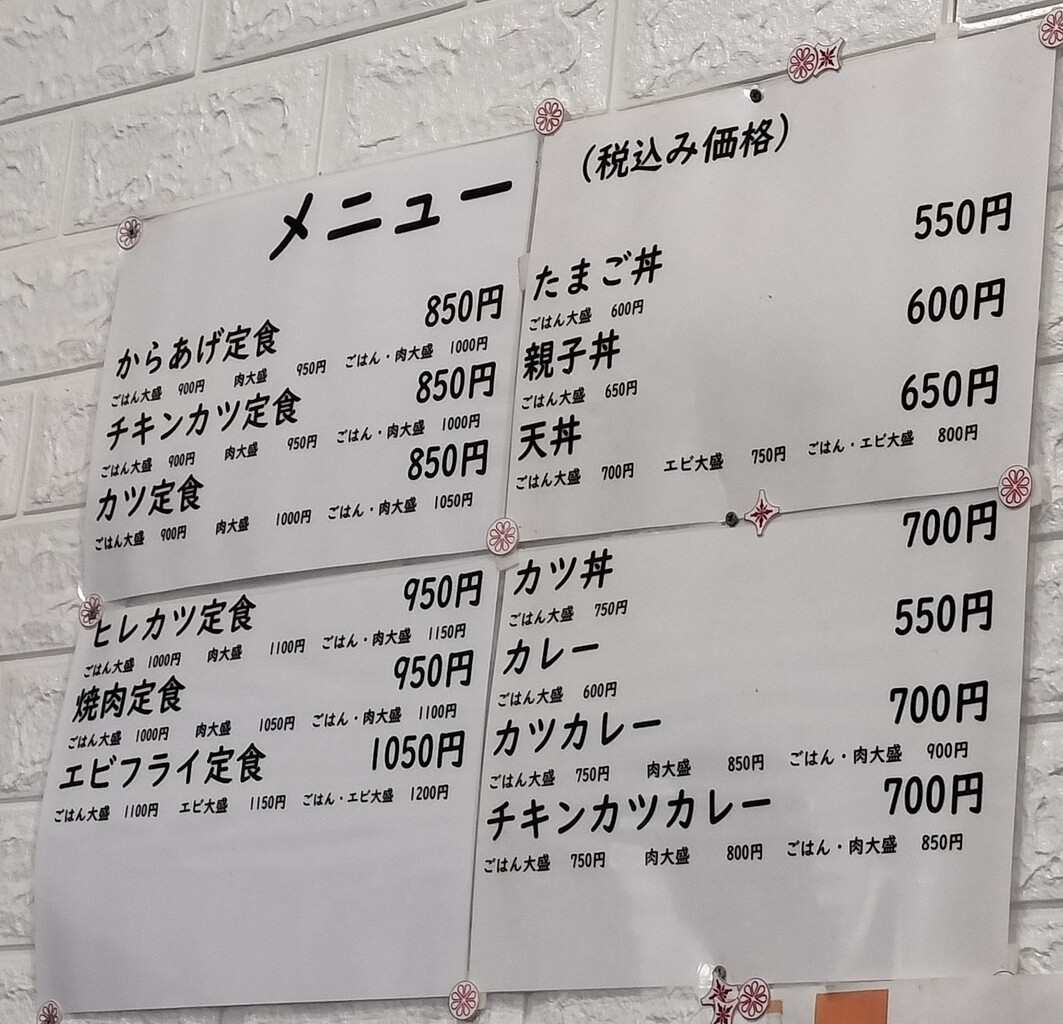 メニュー
からあげ定食 850円
ごはん大盛 900円 肉大盛 950円 ごはん・肉大盛 1000円
チキンカツ定食 850円
ごはん大盛 900円 肉大盛 950円 ごはん・肉大盛 1000円
カツ定食 850円
ごはん大盛 900円 肉大盛 1000円 ごはん・肉大盛 1050円
ヒレカツ定食 950円
ごはん大盛 1000円 肉大盛 1100円 ごはん・肉大盛 1150円
焼肉定食 950円
ごはん大盛 1000円 肉大盛 1050円 ごはん・肉大盛 1100円
エビフライ定食 1050円
ごはん大盛 1100円 エビ大盛 1150円 ごはん・エビ大盛 1200円
(税込み価格)
たまご丼 550円
ごはん大盛 600円
親子丼 600円
ごはん大盛 650円
天丼 650円
ごはん大盛 700円 エビ大盛 750円 ごはん・エビ大盛 800円
カツ丼 700円
ごはん大盛 750円
カレー 550円
ごはん大盛 600円
カツカレー 700円
ごはん大盛 750円 肉大盛 850円 ごはん・肉大盛 900円
チキンカツカレー 700円
ごはん大盛 750円 肉大盛 800円 ごはん・肉大盛 850円